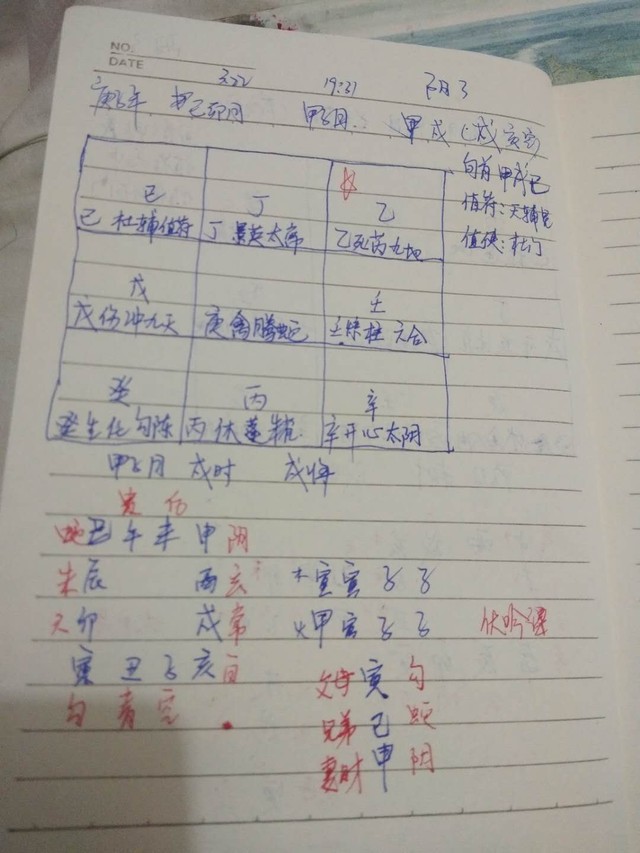 NO.
DATE
3.22 19:31 阳3
庚子年 己卯月 甲子日. 甲戌 (戌亥空)
旬首甲戌己
值符:天辅星
值使:杜门
己 丁 乙
己杜辅值符 丁景英太常 乙死芮九地
戊 壬
戊伤冲九天 庚禽腾蛇 壬惊柱六合
癸 丙 辛
癸生任勾陈 丙休蓬 辛开心太阴
甲子日 戌时 戌将
贵后
蛇 午 未 申阴
朱辰 酉玄 寅寅子子
天卯 戌常 甲寅子子 伏吟课
寅丑子亥白
勾青空
父母寅勾
兄弟巳蛇
妻财申阴